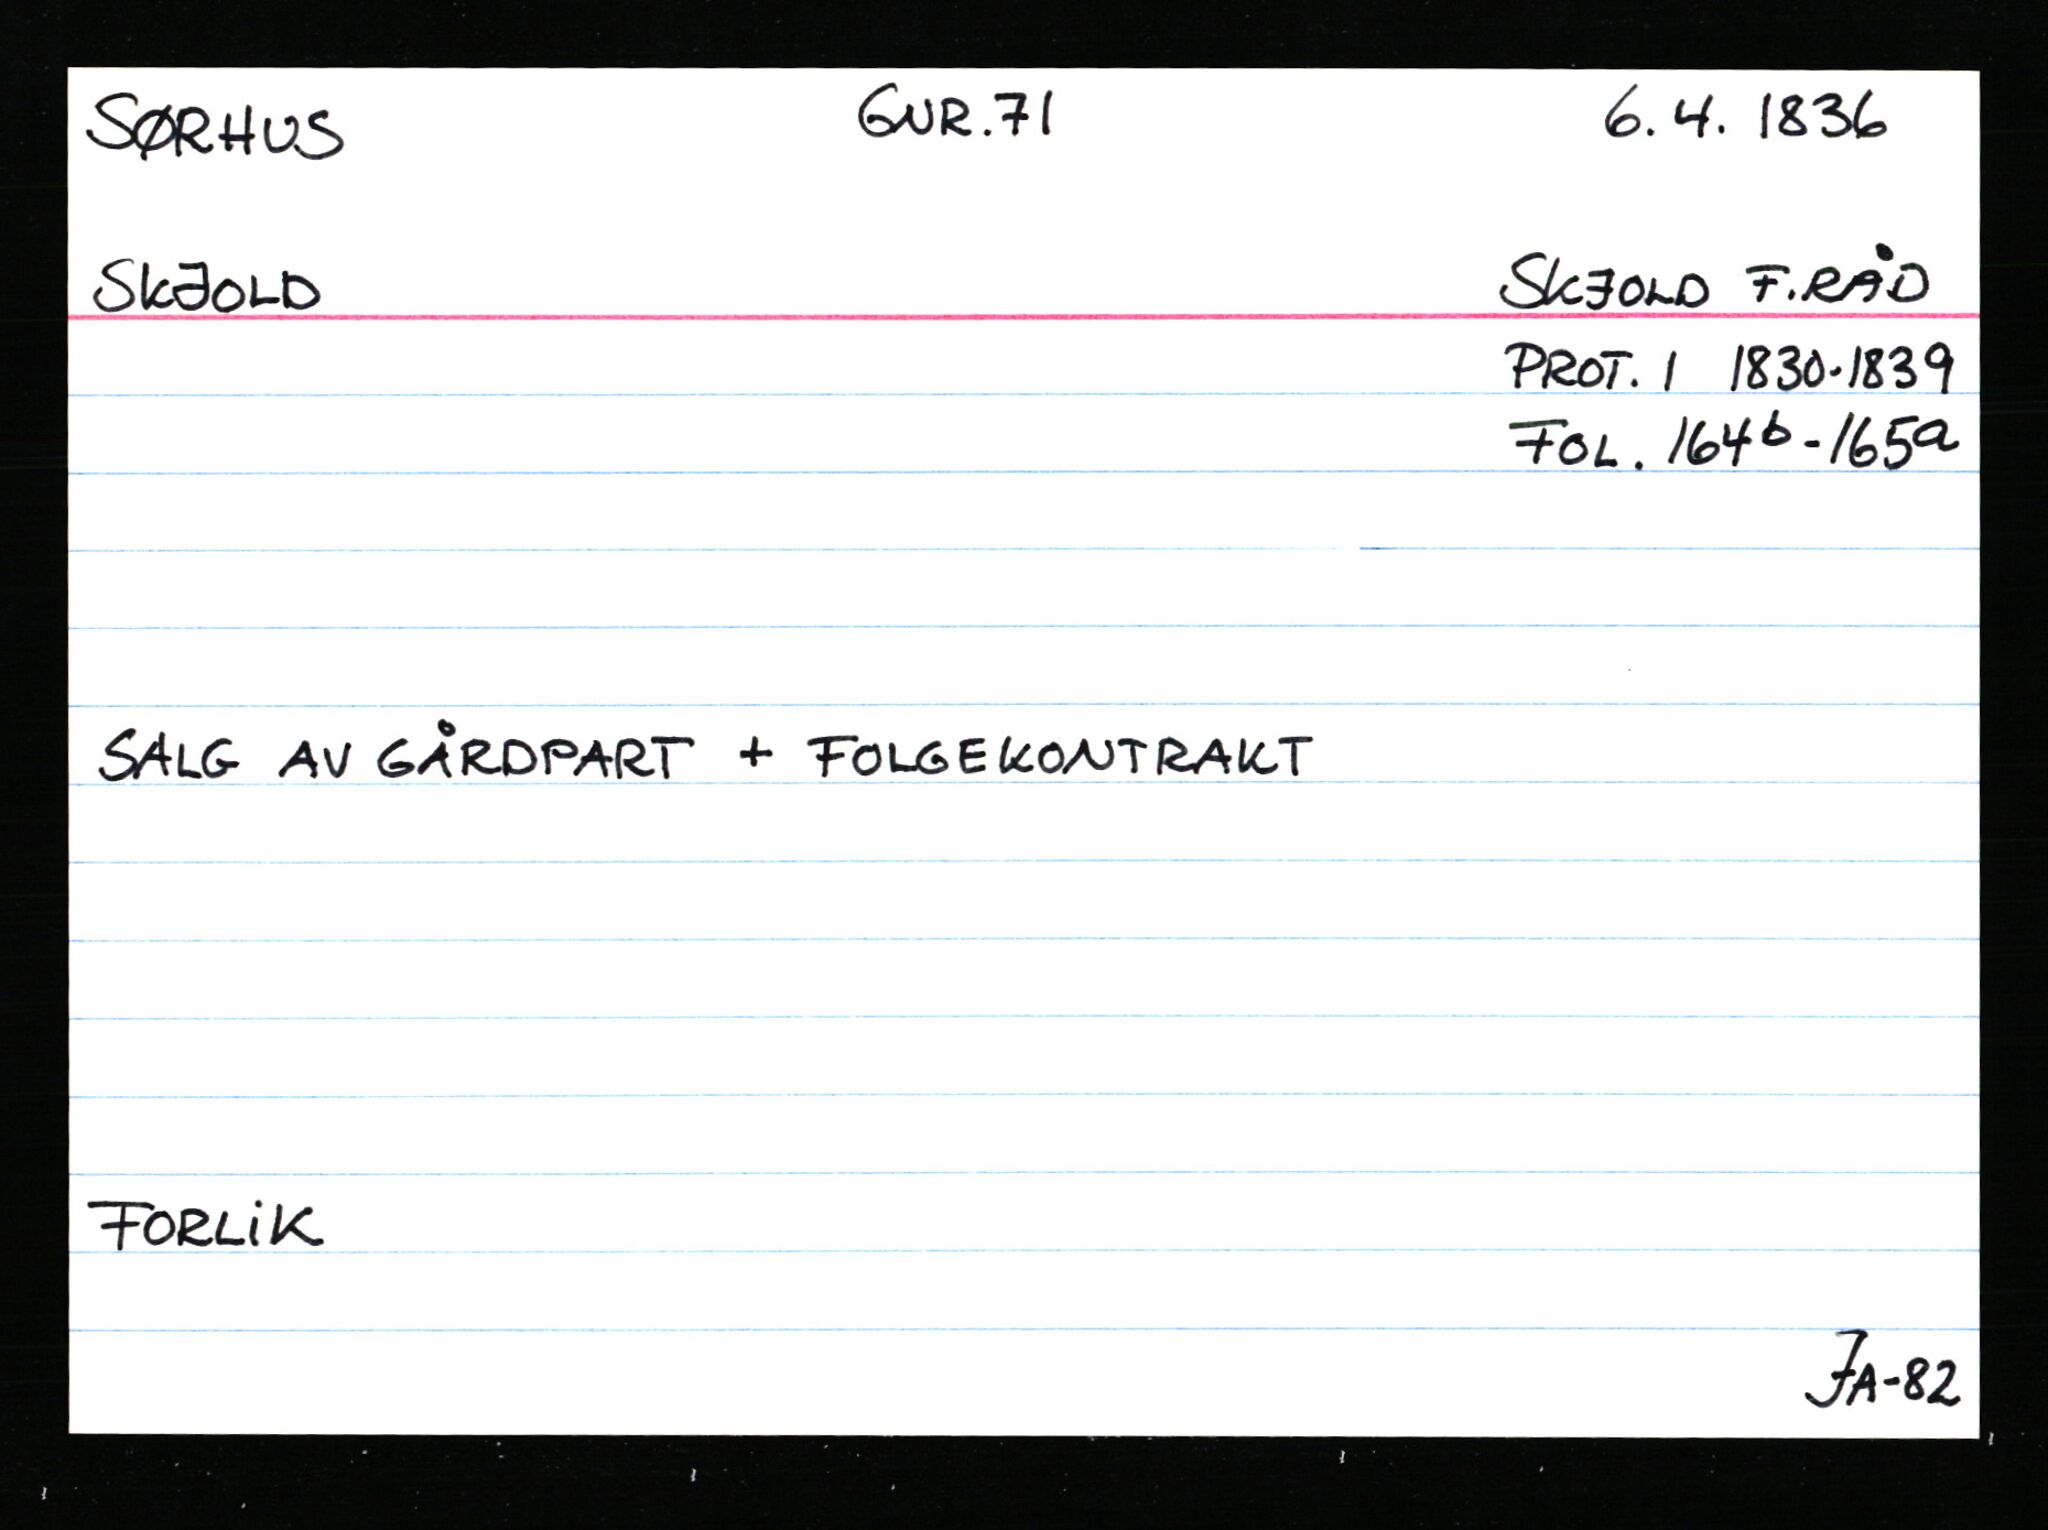 SØRHUS GNR. 71 6. 4. 1836
SKJOLD SKJOLD F.RÅD
PROT. 1 1830-1839
FOL. 164b-165a
SALG AV GÅRDPART + FOLGEKONTRAKT
FORLIK
JA-82